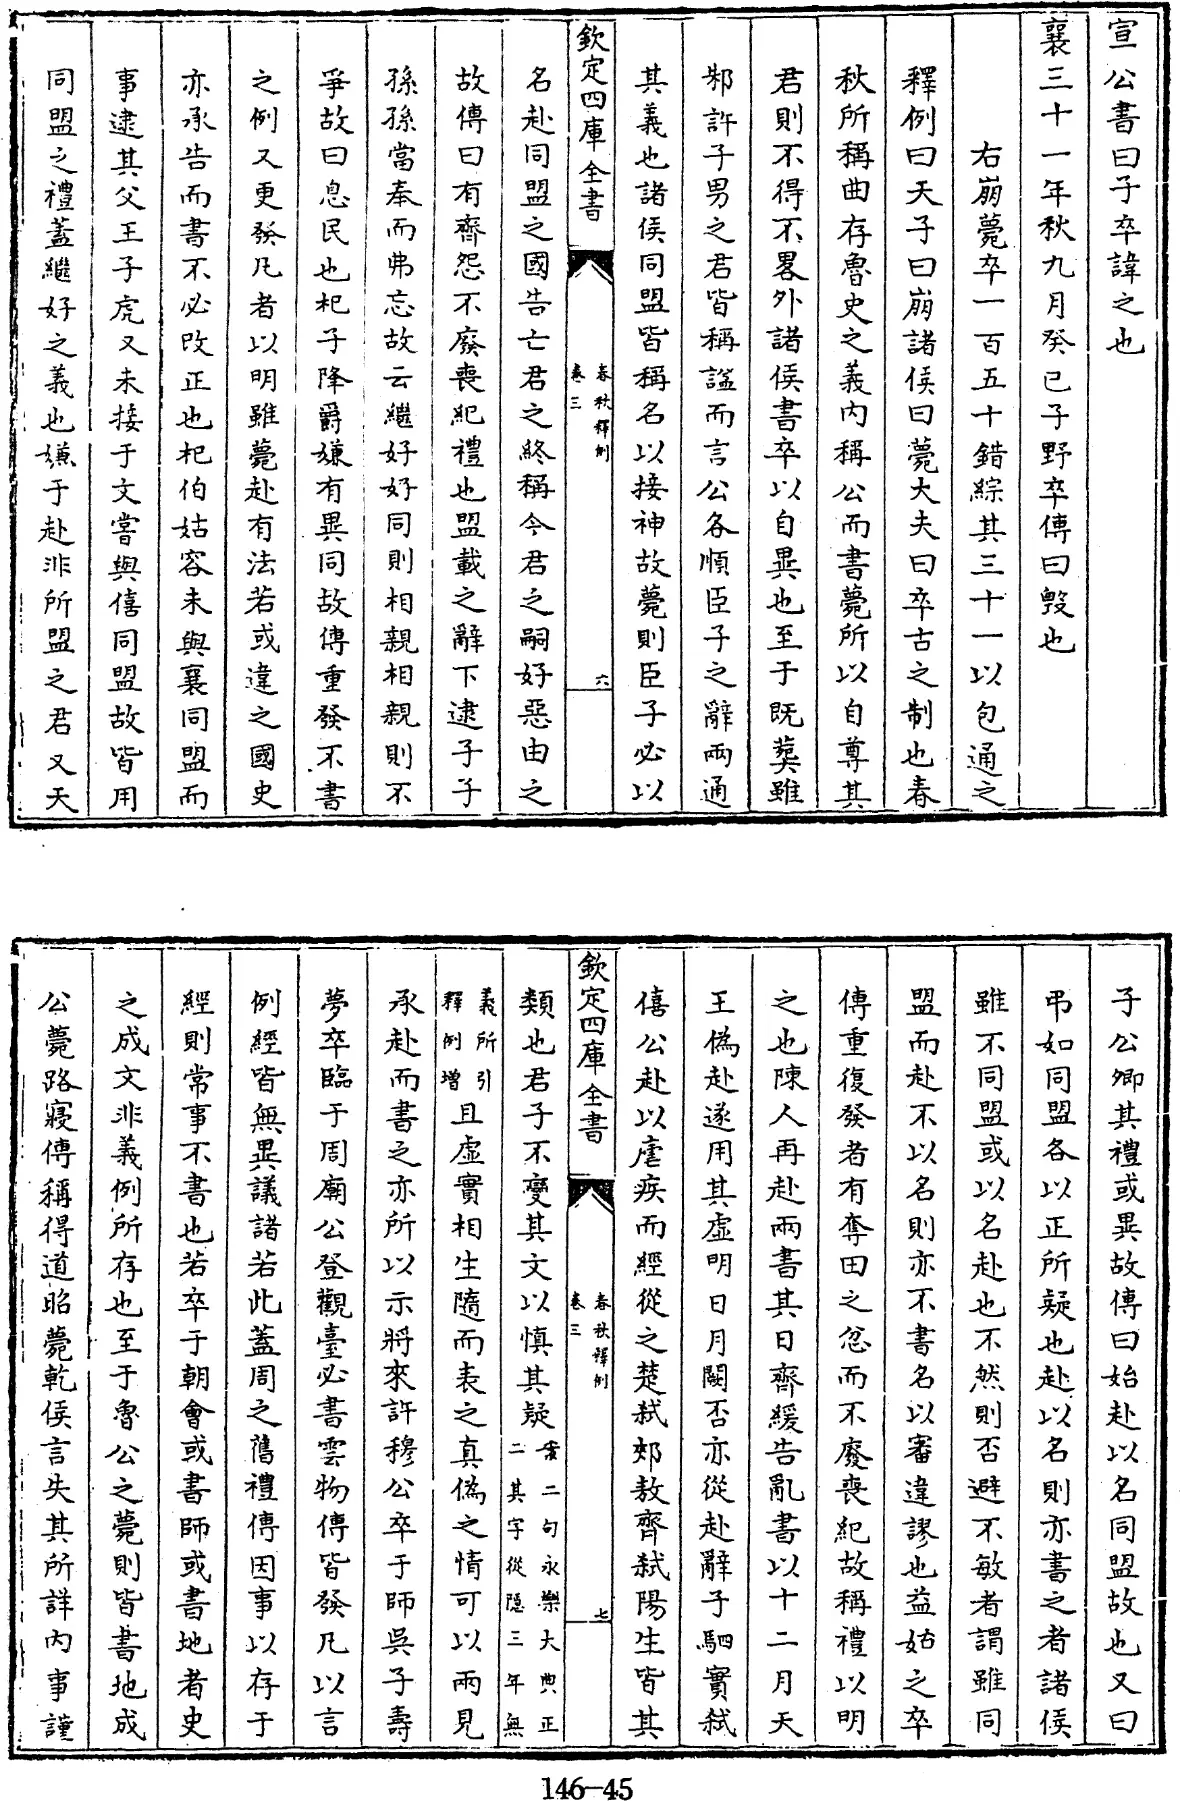 宣公書曰子卒諱之也
襄三十一年秋九月癸巳子野卒傳曰毀也
右崩薨卒一百五十錯綜其三十一以包通之
釋例曰天子曰崩諸侯曰薨大夫曰卒古之制也春
秋所稱曲存魯史之義內稱公而書薨所以自尊其
君則不得不畧外諸侯書卒以自異也至于既葬雖
邾許子男之君皆稱謚而言公各順臣子之辭兩通
其義也諸侯同盟皆稱名以接神故薨則臣子必以
欽定四庫全書
春秋釋例
卷三
六
名赴同盟之國告亡君之終稱今君之嗣好惡由之
故傳曰有齊怨不廢喪紀禮也盟載之辭下逮子子
孫孫當奉而弗忘故云繼好好同則相親相親則不
爭故曰息民也杞子降爵嫌有異同故傳重發不書
之例又更發凡者以明雖薨赴有法若或違之國史
亦承告而書不必改正也杞伯姑容未與襄同盟而
事逮其父王子虎又未接于文嘗與僖同盟故皆用
同盟之禮蓋繼好之義也嫌于赴非所盟之君又天
子公卿其禮或異故傳曰始赴以名同盟故也又曰
弔如同盟各以正所疑也赴以名則亦書之者諸侯
雖不同盟或以名赴也不然則否避不敏者謂雖同
盟而赴不以名則亦不書名以審違謬也益姑之卒
傳重復發者有奪田之忿而不廢喪紀故稱禮以明
之也陳人再赴兩書其日齊緩告亂書以十二月天
王偽赴遂用其虛明日月闕否亦從赴辭子駟實弒
僖公赴以瘧疾而經從之楚弒郟敖齊弒陽生皆其
欽定四庫全書
春秋釋例
卷三
七
類也君子不變其文以慎其疑案二句永樂大典正
二其字從隱三年無
義所引
釋例增且虛實相生隨而表之真偽之情可以兩見
承赴而書之亦所以示將來許穆公卒于師吳子壽
夢卒臨于周廟公登觀臺必書雲物傳皆發凡以言
例經皆無異議諸若此蓋周之舊禮傳因事以存于
經則常事不書也若卒于朝會或書師或書地者史
之成文非義例所存也至于魯公之薨則皆書地成
公薨路寢傳稱得道昭薨乾侯言失其所詳內事謹
146-45